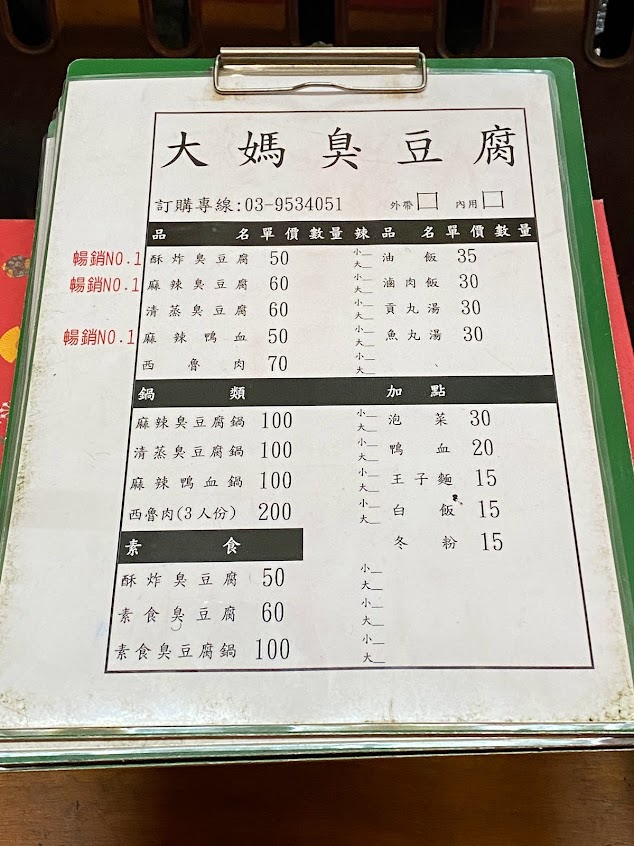 大媽臭豆腐
訂購專線:03-9534051 外帶 內用
品名 單價 數量 辣 品名 單價 數量
暢銷NO.1 酥炸臭豆腐 50 小__大__ 油飯 35
暢銷NO.1 麻辣臭豆腐 60 小__大__ 滷肉飯 30
清蒸臭豆腐 60 小__大__ 貢丸湯 30
暢銷NO.1 麻辣鴨血 50 小__大__ 魚丸湯 30
西魯肉 70 小__大__
鍋類 加點
麻辣臭豆腐鍋 100 小__大__ 泡菜 30
清蒸臭豆腐鍋 100 小__大__ 鴨血 20
麻辣鴨血鍋 100 小__大__ 王子麵 15
西魯肉(3人份) 200 小__大__ 白飯 15
素食 冬粉 15
酥炸臭豆腐 50 小__大__
素食臭豆腐 60 小__大__
素食臭豆腐鍋 100 小__大__